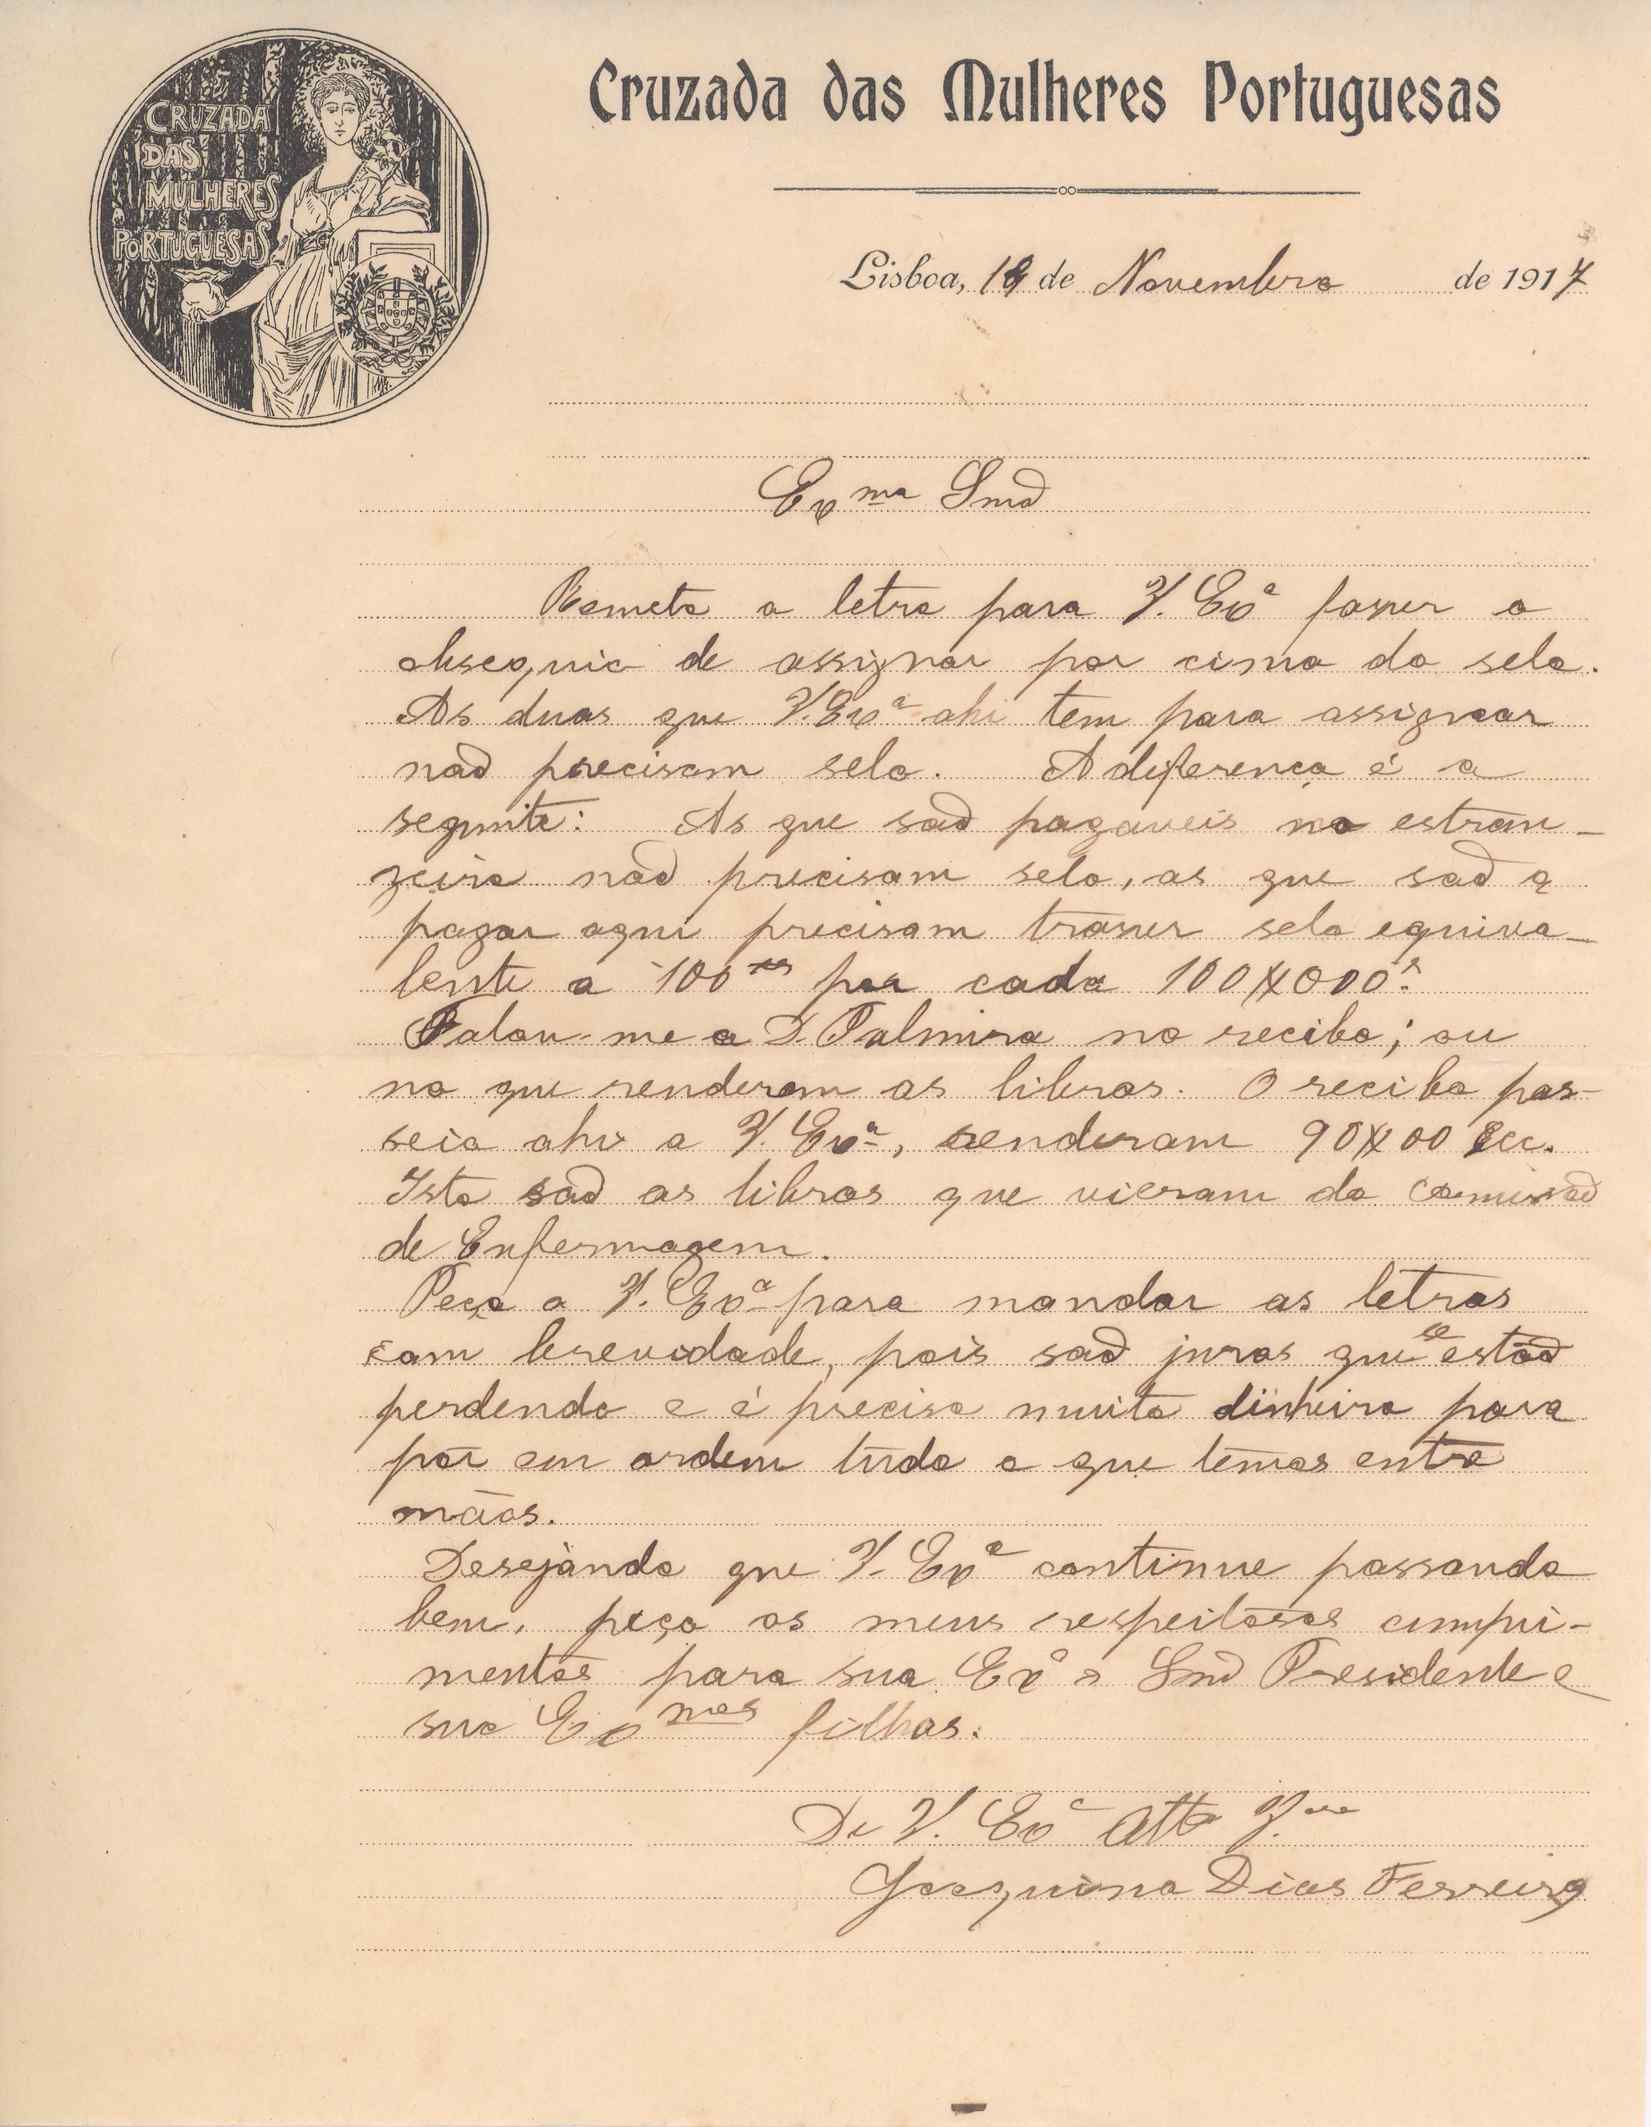 CRUZADA
DAS
MULHERES
PORTUGUESAS
Cruzada das Mulheres Portuguesas
Lisboa, 19 de Novembro de 1917
Exma Snrã
Remeto a letra para V. Exa faser o
obsequio de assignar por cima do selo.
As duas que V. Exa ahi tem para assignar
não precisam selo. A diferença é a
seguinte: As que são pagaveis no estran-
geiro não precisam selo, as que são a
pagar aqui precisam traser selo equiva-
lente a 100 rs por cada 100$000 rs
Falou-me a D. Palmira no recibo; ou
no que renderam as libras. O recibo pas-
seio ahi a V. Exa, renderam 90$00 Esc.
Isto são as libras que vieram da comissão
de Enfermagem.
Peço a V. Exa para mandar as letras
com brevidade, pois são juros que se estão
perdendo e é preciso muito dinheiro para
pôr em ordem tudo o que temos entre
mãos.
Desejando que V. Exa continue passando
bem, peço os meus respeitosos cumpri-
mentos para sua Exa o Snr Presidente e
sua Exmas filhas.
De V. Exa Atta
Joaquina Dias Ferreira